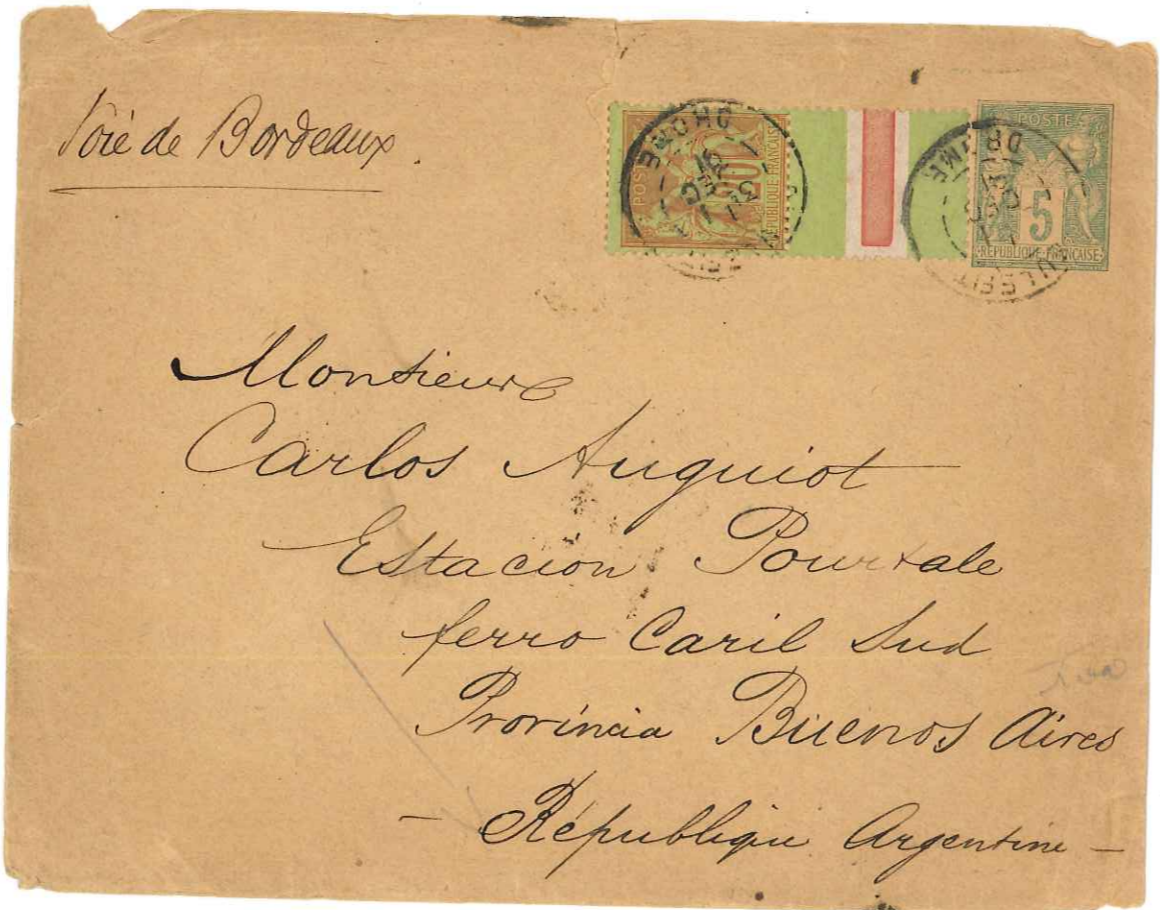 Voie de Bordeaux.
POSTE
20
RÉPUBLIQUE FRANÇAISE
DROME
31
DEC
POSTES
5
RÉPUBLIQUE FRANÇAISE
DROME
Monsieur
Carlos Auguiot
Estacion Pourtale
ferro Caril Sud
Província Buenos Aires
- République Argentine -